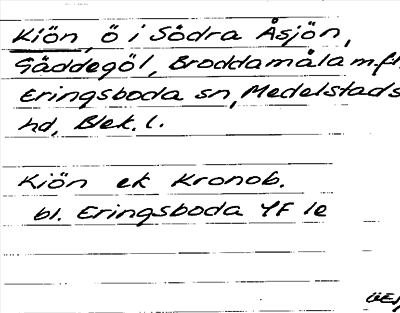 Kiön, ö i Södra Åsjön,
Gäddegöl, Broddamåla m.fl.
Eringsboda sn, Medelstads
hd, Blek. l.
Kiön ek Kronob.
bl. Eringsboda YF 1e